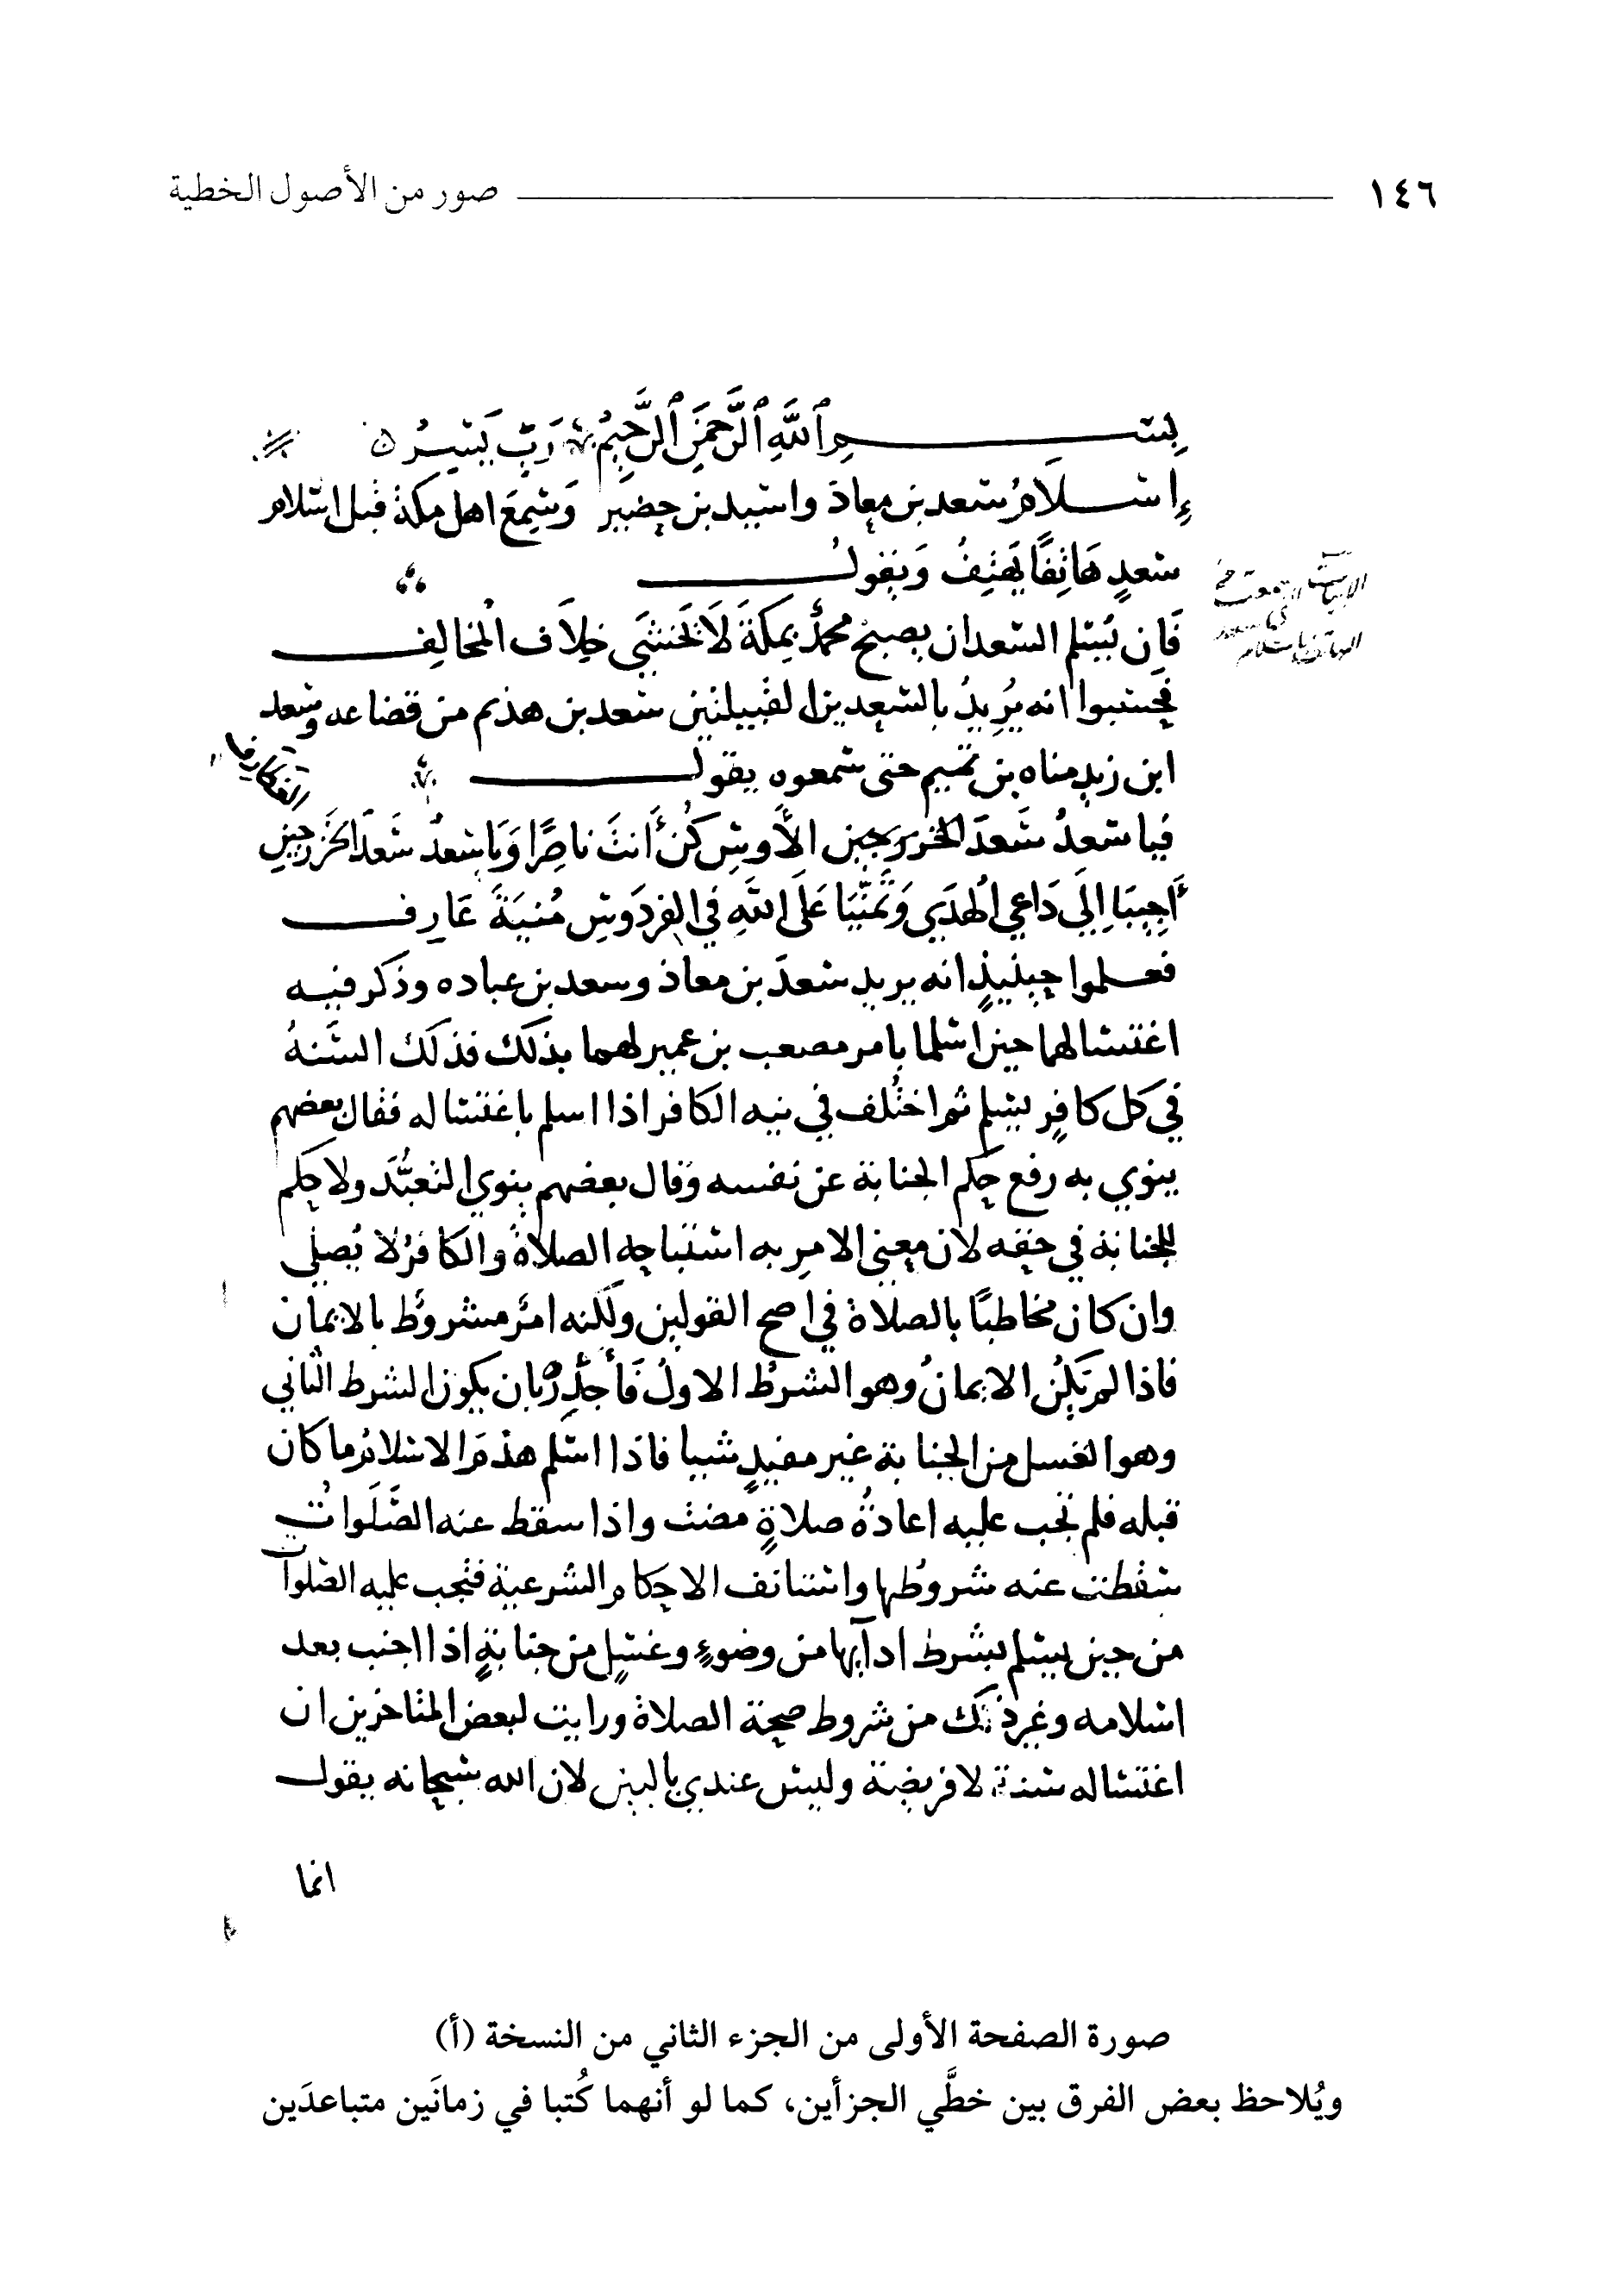 ١٤٦ صور من الأصول الخطية
بسم اللَّهِ الرَّحمَنِ الرَّحِيمُ رَبِّ يَسِّرْ
إسلَامُ سعد بن معاذ واسيد بن حضير وَسَمِعَ اهل مكة قبل اسلام
سَعدٍ هَاتِفًا يَهتِفُ وَيَقولُ
فَإن يُسلم السعدان يصبح محمدٌ بمكةَ لَا يَخشَى خِلَاف المخالِفِ
فحسبوا انه يُرِيدُ بالسعدين القبيلتين سعد بن هذيم من قضاعه وسعد
ابن زيد مناه بن تميم حتى سمعوه يقول
فيا سعدُ سَعدَ الأوسِ كُن أَنتَ ناصِرًا وَيَا سعدُ سَعدَ الخَزرجين
الغطارف
أَجِيبَا إِلَى دَاعي الهُدَى وَتَمَنَّيَا عَلَى اللَّهِ في الفِردَوسِ مُنيَةَ عَارِفِ
فعلموا حينئذٍ انه يريد سعدَ بن معاذ وسعد بن عباده وذكر فيه
اغتسالهما حين اسلما بامر مصعب بن عمير لهما بذلك فذلك السُّنهُ
في كل كافرٍ يسلم ثم اختُلف في نيه الكافر اذا اسلم باغتساله فقال بعضهم
ينوي به رفع حكم الجنابة عن نفسه وقال بعضهم ينوي التعبُّد ولا حكم
للجنابة في حقه لان معنى الامر به استباحه الصلاة والكافرُ لا يُصلي
وان كان مخاطبًا بالصلاة في اصح القولين ولكنه امرٌ مشروطٌ بالايمان
فاذا لم يَكُن الايمانُ وهو الشرطُ الاولُ فَأَجْدِرْ بان يكون الشرط الثاني
وهو الغسل من الجنابة غير مفيدٍ شيا فاذا اسلم هدَمَ الاسلامُ ما كان
قبله فلم تجب عليه اعادةُ صلاةٍ مضت واذا سقط عنه الصَّلَواتُ
سقطت عنه شروطُها واستانف الاحكام الشرعية فتجب عليه الصلوات
من حين يسلم بشرط ادآيها من وضوءٍ وغسلٍ من جنابةٍ اذا اجنب بعد
اسلامه وغير ذلك من شروط صحة الصلاة ورايت لبعض المتاخرين ان
اغتساله سنة لا فريضة وليس عندي بالبين لان الله سبحانه يقول
انما
صورة الصفحة الأولى من الجزء الثاني من النسخة (أ)
ويُلاحظ بعض الفرق بين خطَّي الجزأين، كما لو أنهما كُتبا في زمانَين متباعدَين